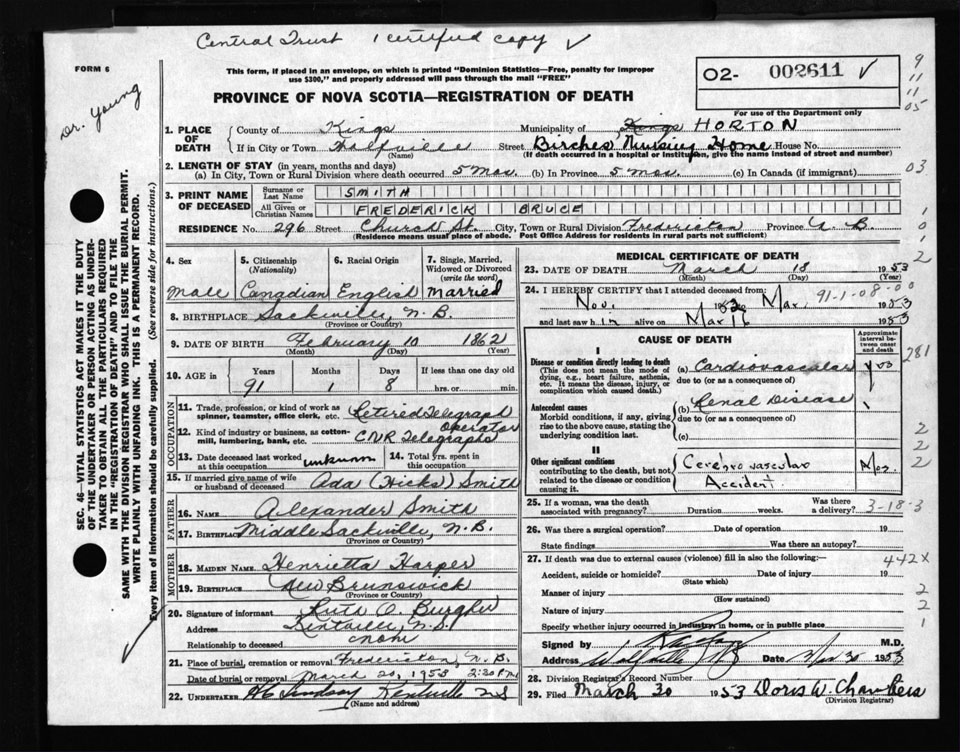 Central Trust 1 certified copy ✓
FORM 6
Dr. Young
This form, if placed in an envelope, on which is printed "Dominion Statistics—Free, penalty for improper
use $300," and properly addressed will pass through the mail "FREE"
02- 002611 ✓
9
11
11
05
PROVINCE OF NOVA SCOTIA—REGISTRATION OF DEATH
For use of the Department only
1. PLACE OF DEATH
County of Kings Municipality of Kings HORTON
If in City or Town Wolfville Street Birches Nursing Home House No.
(Name) (If death occurred in a hospital or institution, give the name instead of street and number)
2. LENGTH OF STAY (in years, months and days)
(a) In City, Town or Rural Division where death occurred 5 Mos. (b) In Province 5 mos. (c) In Canada (if immigrant)
03
3. PRINT NAME OF DECEASED
Surname or Last Name SMITH
All Given or Christian Names FREDERICK BRUCE
1
RESIDENCE No. 296 Street Church St. City, Town or Rural Division Fredericton Province N. B.
(Residence means usual place of abode. Post Office Address for residents in rural parts not sufficient)
0
1
2
SEC. 46—VITAL STATISTICS ACT MAKES IT THE DUTY
OF THE UNDERTAKER OR PERSON ACTING AS UNDER-
TAKER TO OBTAIN ALL THE PARTICULARS REQUIRED
IN THE "REGISTRATION OF DEATH" AND TO FILE THE
SAME WITH THE DIVISION REGISTRAR WHO SHALL ISSUE THE BURIAL PERMIT.
WRITE PLAINLY WITH UNFADING INK. THIS IS A PERMANENT RECORD.
Every item of information should be carefully supplied. (See reverse side for instructions.)
4. Sex Male
5. Citizenship (Nationality) Canadian
6. Racial Origin English
7. Single, Married, Widowed or Divorced (write the word) Married
8. BIRTHPLACE Sackville, N.B.
(Province or Country)
9. DATE OF BIRTH February 10 1862
(Month) (Day) (Year)
10. AGE in Years Months Days If less than one day
91 1 8 hrs. or min.
OCCUPATION
11. Trade, profession, or kind of work as spinner, teamster, office clerk, etc. Retired Telegraph Operator
12. Kind of industry or business, as cotton-mill, lumbering, bank, etc. CNR Telegraphs
13. Date deceased last worked at this occupation unknown
14. Total yrs. spent in this occupation
15. If married give name of wife or husband of deceased Ada (Hicks) Smith
FATHER
16. Name Alexander Smith
17. Birthplace Middle Sackville, N.B.
(Province or Country)
MOTHER
18. Maiden Name Henrietta Harper
19. Birthplace New Brunswick
(Province or Country)
20. Signature of informant
Address Kentville, N.S.
Relationship to deceased
21. Place of burial, cremation or removal Fredericton, N.B.
Date of burial or removal March 20, 1953 2:30 P.M.
22. Undertaker Lindsay Kentville N S
(Name and address)
MEDICAL CERTIFICATE OF DEATH
23. DATE OF DEATH March 18 1953
(Month) (Day) (Year)
24. I HEREBY CERTIFY that I attended deceased from:
91-1-08-00
Nov. 1952 Mar. 1953
and last saw him alive on Mar 16 1953
CAUSE OF DEATH
Approximate interval between onset and death
281
I
Disease or condition directly leading to death
(This does not mean the mode of dying, e.g., heart failure, asthenia, etc. It means the disease, injury, or complication which caused death.)
(a) Cardiovascular
due to (or as a consequence of)
Antecedent causes
Morbid conditions, if any, giving rise to the above cause, stating the underlying condition last.
(b) Renal Disease
due to (or as a consequence of)
(c)
2
2
2
II
Other significant conditions
contributing to the death, but not related to the disease or condition causing it.
Cerebrovascular
Accident
Mos.
25. If a woman, was the death associated with pregnancy? Duration weeks. Was there a delivery?
3-18-3
26. Was there a surgical operation? Date of operation 19
State findings Was there an autopsy?
27. If death was due to external causes (violence) fill in also the following:—
442X
Accident, suicide or homicide? Date of injury 19
(State which)
Manner of injury
(How sustained)
2
Nature of injury
2
Specify whether injury occurred in industry, in home, or in public place
1
Signed by M.D.
Address Wolfville Date Mar 30 1953
28. Division Registrar's Record Number
29. Filed March 30 1953 Doris W. Chambers
(Division Registrar)